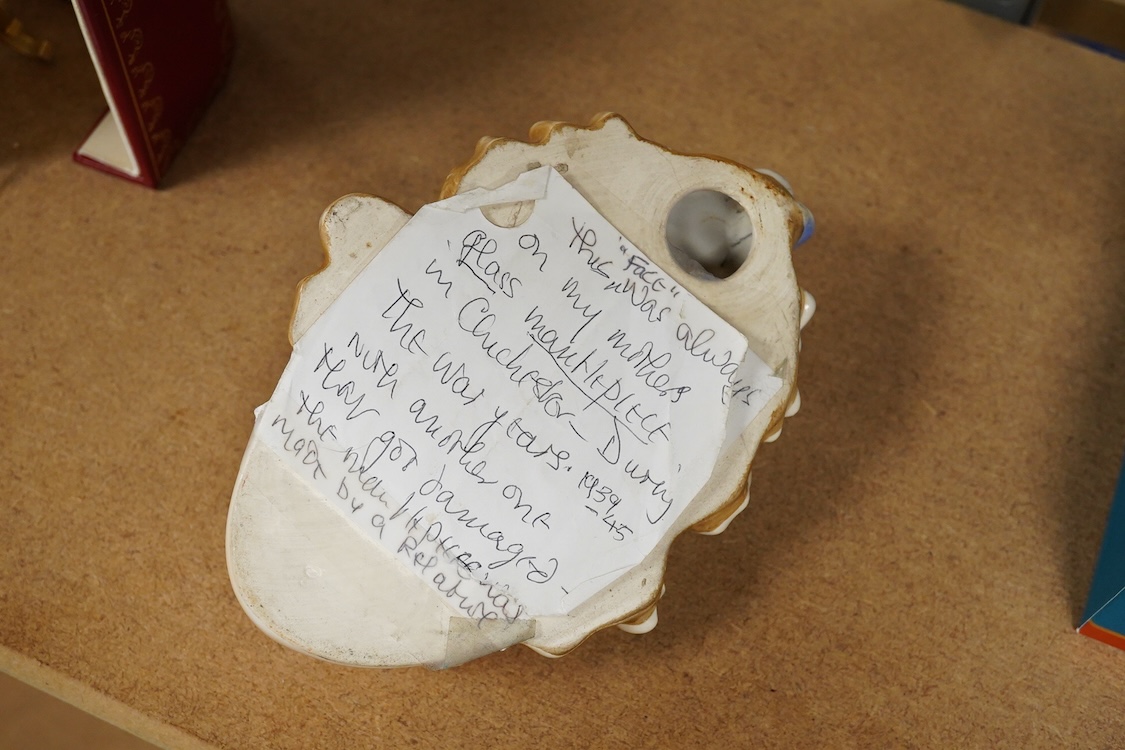 "FACE"
this was always
on my mothers
glass mantlepiece
in Chichester - During
The war years. 1939-45
with another one
that got damaged -
the mantlepiece was
made by a relative